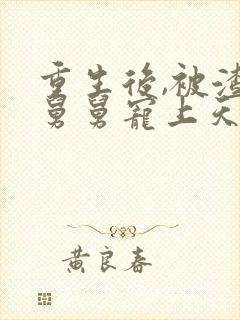 重生後,被渣
舅舅寵上天
黃良春